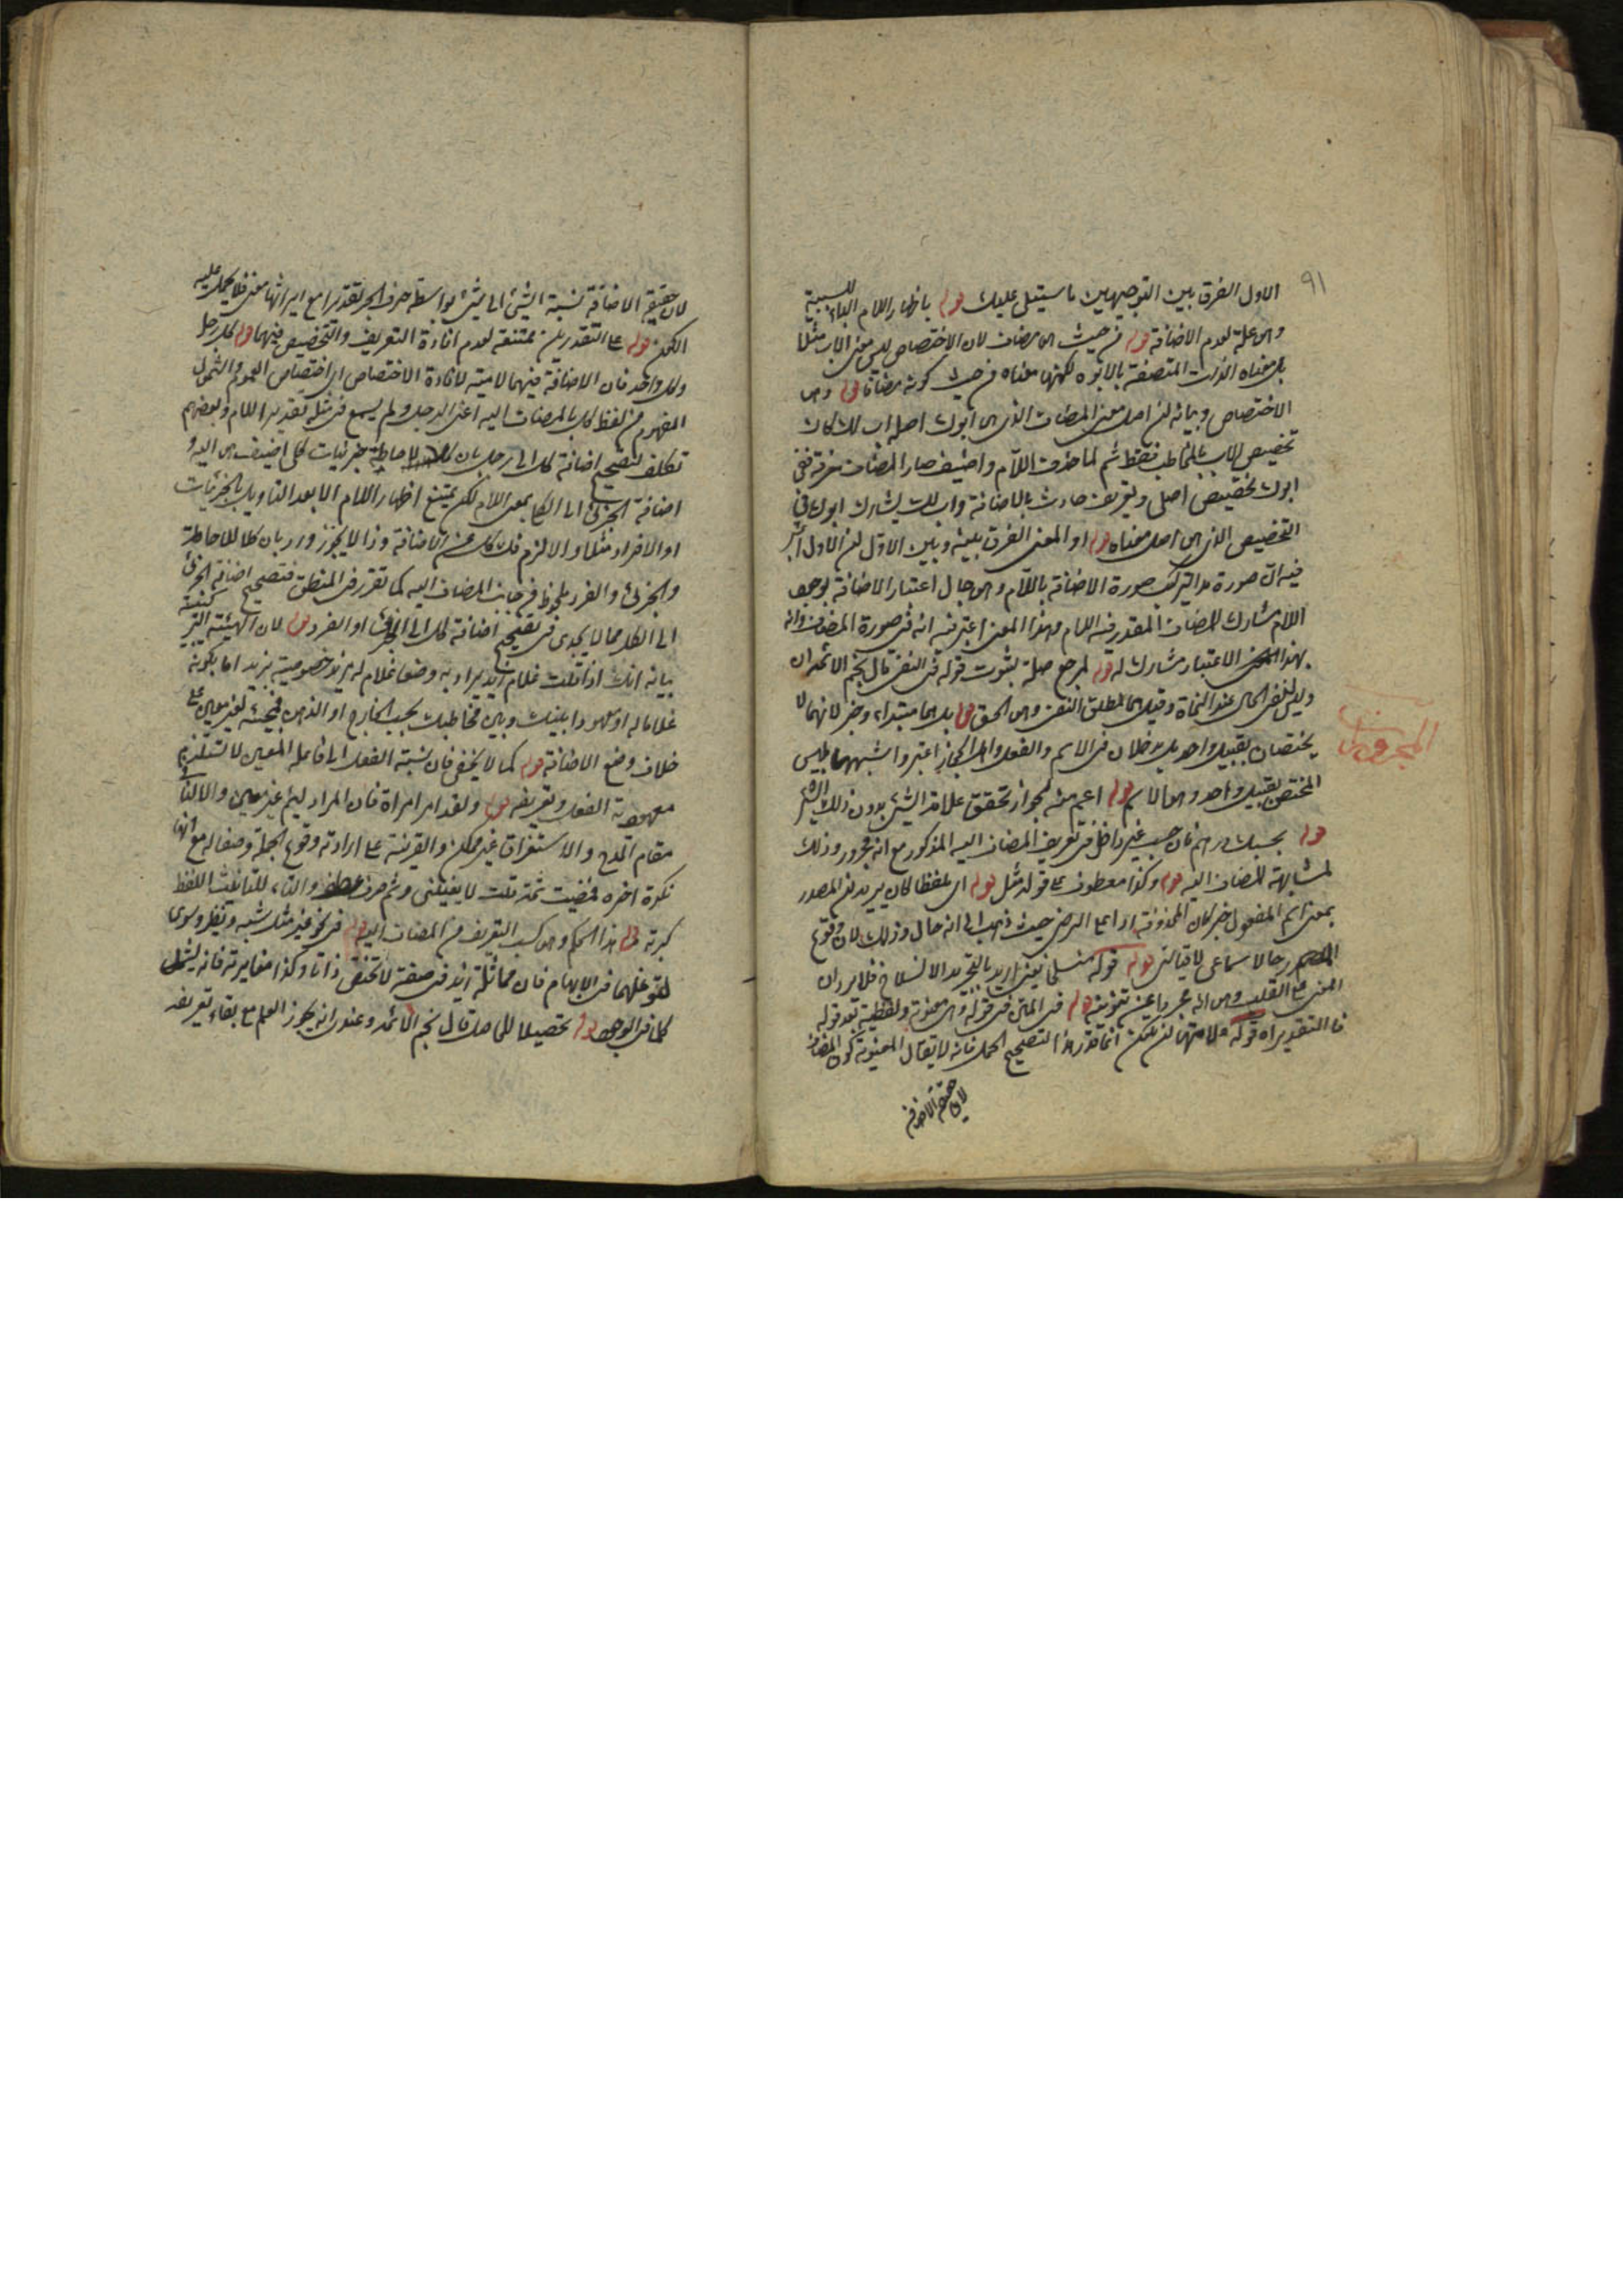 ٩١
الاول الفرق بين التوجيهين ما سيتلى عليك قوله باظهار اللام الباء للسببية
وهى علة لعدم الاضافة قوله من حيث هى مضاف لان الاختصاص ليس معنى الاب مثلا
بل معناه الذات المتصفة بالابوة لكنها معناه من حيث كونه مضافا قوله وهى
الاختصاص وبيانه ان اصل معنى المضاف الذى هى ابوك اصله اب لك كان
تخصيص الاب بالمخاطب فقط ثم لما حذفت اللام واضيف صار المضاف معرفة ففى
ابوك تخصيص اصلى وتعريف حادث بالاضافة واب لك يشارك ابوك فى
التخصيص الذى هى اصل معناه قوله او المعنى الفرق بينه وبين الاول ان الاول اعتبر
فيه ان صورة هذا التركيب صورة الاضافة باللام وهى حال اعتبار الاضافة بوجود
اللام مشارك للمضاف المقدر فيه اللام وهذا المعنى اعتبر فيه انه فى صورة المضاف وانه
بهذا الاعتبار مشارك له قوله لمرجع صلة بثبوت قوله فى النفى قال نجم الائمة ان
وليس لنفى الحال عند النحاة وقيل هى لمطلق النفى وهى الحق قوله بل هما مبتداء وخبر لانهما لا
يختصان بقبيل واحد بل يدخلان فى الاسم والفعل واهل الحجاز اعتبروا شبههما بليس
المختص بقبيل واحد وهى الاسم قوله اعم منه لجواز تحقق علاقة الشئ بدون ذلك الشئ
قوله بحسبك درهم فان حسب غير داخل فى تعريف المضاف اليه المذكور مع انه مجرور وذلك
لمشابهة المضاف اليه قوله وكذا معطوف على قوله مثل قوله اى ملفظا كان يريد ان المصدر
بمعنى اسم المفعول خبر كان المحذوفة ايماء الى الرضى حيث ذهب الى انه حال وذلك لان وقوع
المصدر حالا سماعى لا قياسى قوله قوله منسلخا يعنى اريد بالتجريد الانسلاخ فلا يرد ان
المعنى على القلب وهى انه مجردا عن تنوينه قوله فى المتن فى قوله وهى معنوية ولفظية بعد قوله
فالتقدير اه قوله علامتها ان يمكن انما قدر هذا لتصحيح الحمل فانه لا يقال المعنوية كون المضاف
المجرورات
لان حقيقة الاضافة نسبة الشئ الى شئ بواسطة حرف الجر تقديرا مع اثرها معنى فلا يحمل عليه
الكون قوله على التقديرين ممتنعة لعدم افادة التعريف والتخصيص فيهما قوله كل رجل
وكل واحد فان الاضافة فيهما لامية لافادة الاختصاص اى اختصاص العموم والشمول
المفهوم من لفظ كل بالمضاف اليه اعنى الرجل ولم يسمع فى مثله تقدير اللام وبعضهم
تكلف لتصحيح اضافة كل الى رجل بان كلا لاحاطة جزئيات كلى اضيف هى اليه و
اضافة الجزئى الى الكلى بمعنى اللام لكن يمتنع اظهار اللام الا بعد التاويل بالجزئيات
او الافراد مثلا والا لزم فك كل عن الاضافة وذا لا يجوز ورد بان كلا للاحاطة
والجزئى والفرد ملحوظ فى جانب المضاف اليه كما تقرر فى المنطق فتصحيح اضافة الجزئى
الى الكلى مما لا يجدى فى تصحيح اضافة كل الى الجزئى او الفرد قوله لان الهيئة التركيبية
بيانه انك اذا قلت غلام زيد يراد به وضعا غلام له مزيد خصوصية بزيد اما بكونه
غلاما له او معهودا بينك وبين مخاطبك بحسب الخارج او الذهن فمجيئه لغير معين على
خلاف وضع الاضافة قوله كما لا يخفى فان نسبة الفعل الى فاعله المعين لا تستلزم
معهودية الفعل وتعريفه قوله ولقد امر امراة فان المراد لئيم غير معين والا لفات
مقام المدح والاستغراق غير ممكن والقرينة على ارادته وقوع الجملة وصفا له مع انها
نكرة اخره فمضيت ثمة قلت لا يعنينى وثم حرف عطف والتاء للتانيث اللفظ
كبرية قوله هذا الحكم وهى كسب التعريف من المضاف اليه قوله فى نحو غير مثل شبه ونظير وسوى
لتوغلهما فى الابهام فان مماثلة زيد فى صفة لا تختص ذاتا وكذا مغايرته فانه يشمل
كلما فى الوجود قوله تحصيلا للحاصل قال نجم الائمة وعندى انه يجوز العلم مع بقاء تعريفه